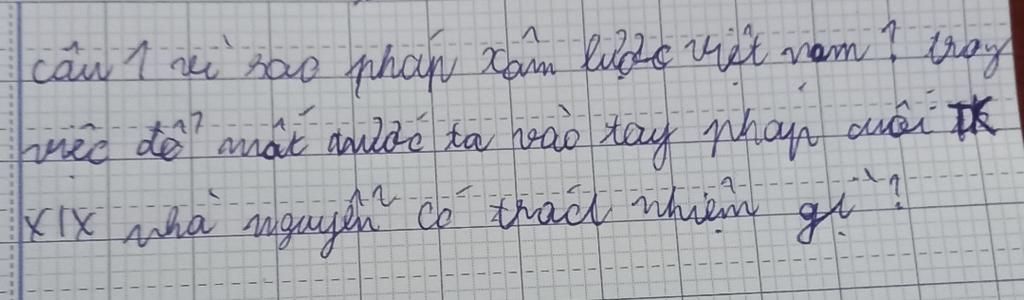 câu 1 vì sao pháp xâm lược việt nam? trong
việc để mất nước ta vào tay pháp cuối TK
XIX nhà nguyễn có trách nhiệm gì?